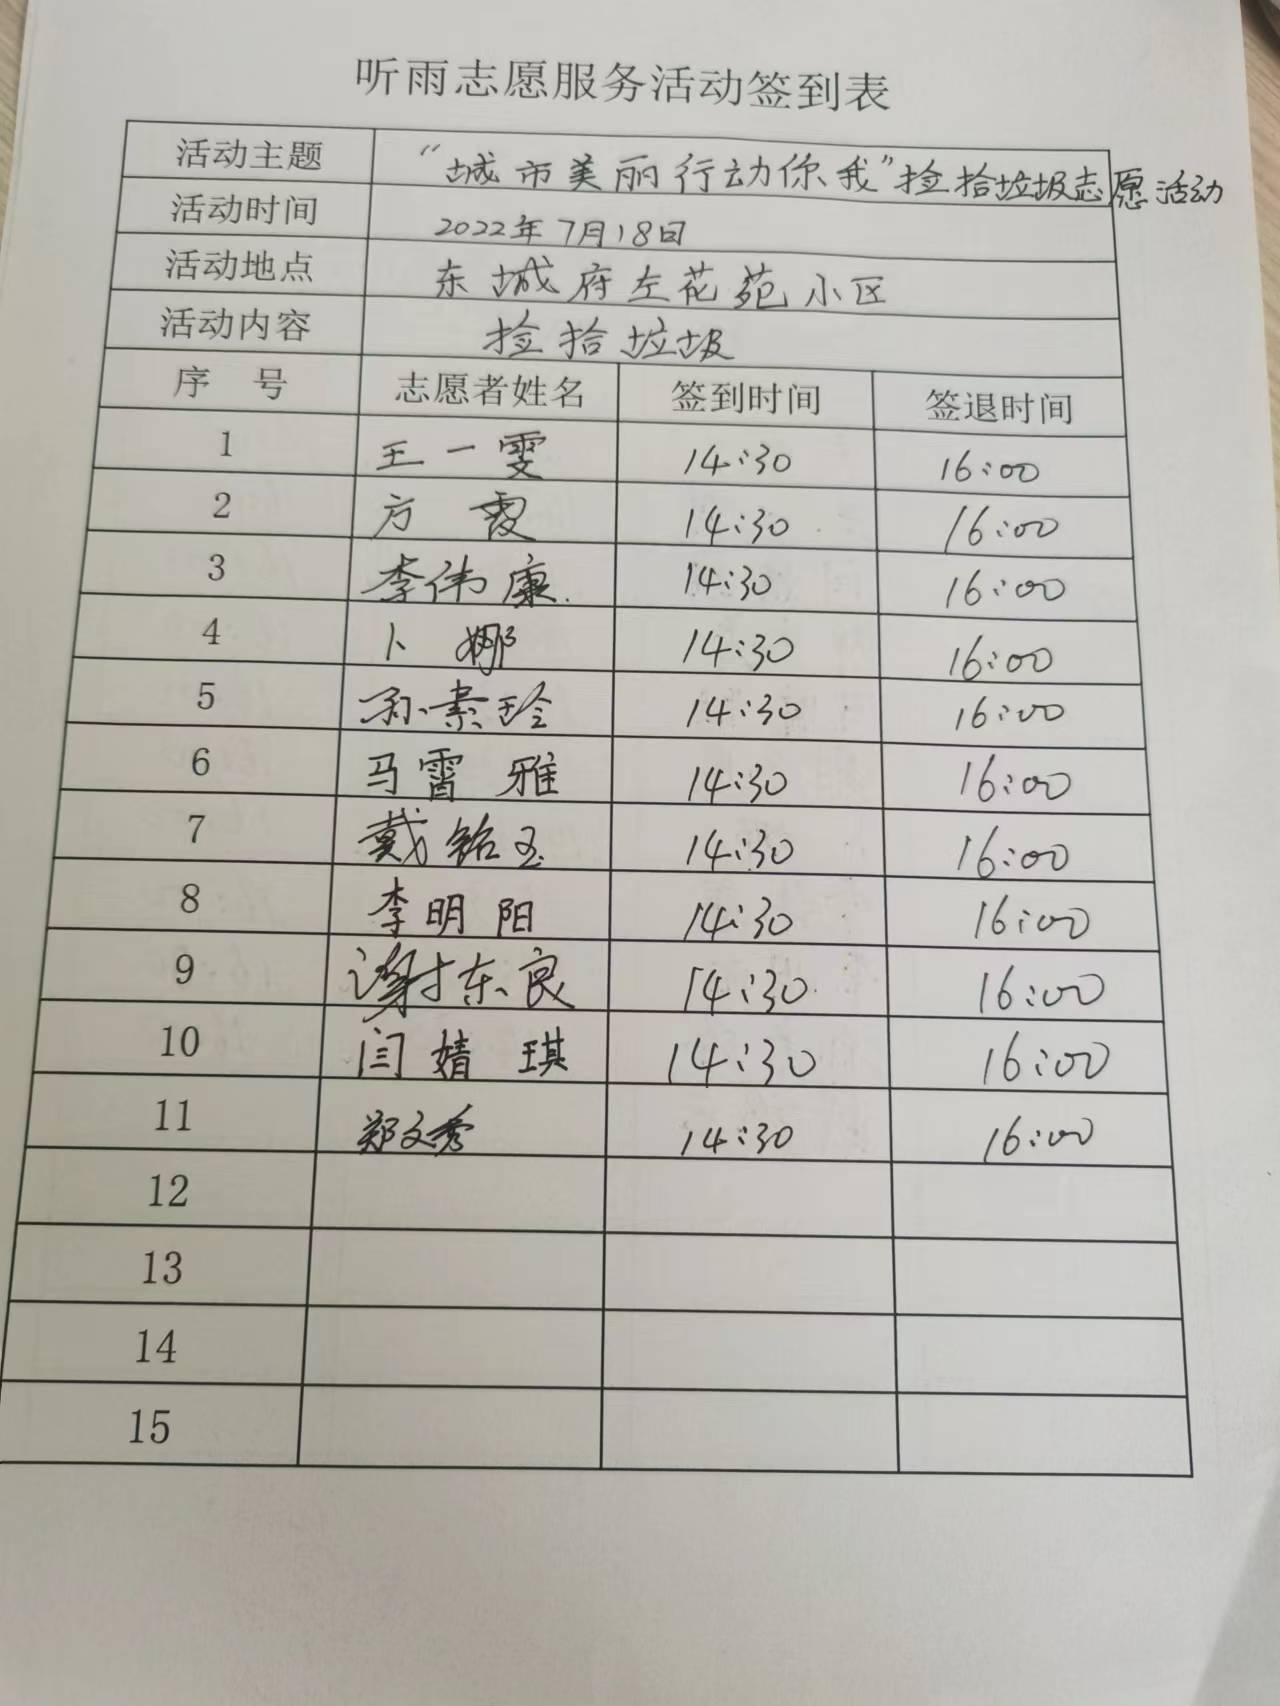 听雨志愿服务活动签到表
活动主题 “城市美丽行动你我”捡拾垃圾志愿活动
活动时间 2022年7月18日
活动地点 东城府左花苑小区
活动内容 捡拾垃圾
序 号 志愿者姓名 签到时间 签退时间
1 王一雯 14:30 16:00
2 方霞 14:30 16:00
3 李伟康 14:30 16:00
4 卜娜 14:30 16:00
5 孙素玲 14:30 16:00
6 马霄雅 14:30 16:00
7 戴铭玉 14:30 16:00
8 李明阳 14:30 16:00
9 谢东良 14:30 16:00
10 闫婧琪 14:30 16:00
11 郑文秀 14:30 16:00
12
13
14
15